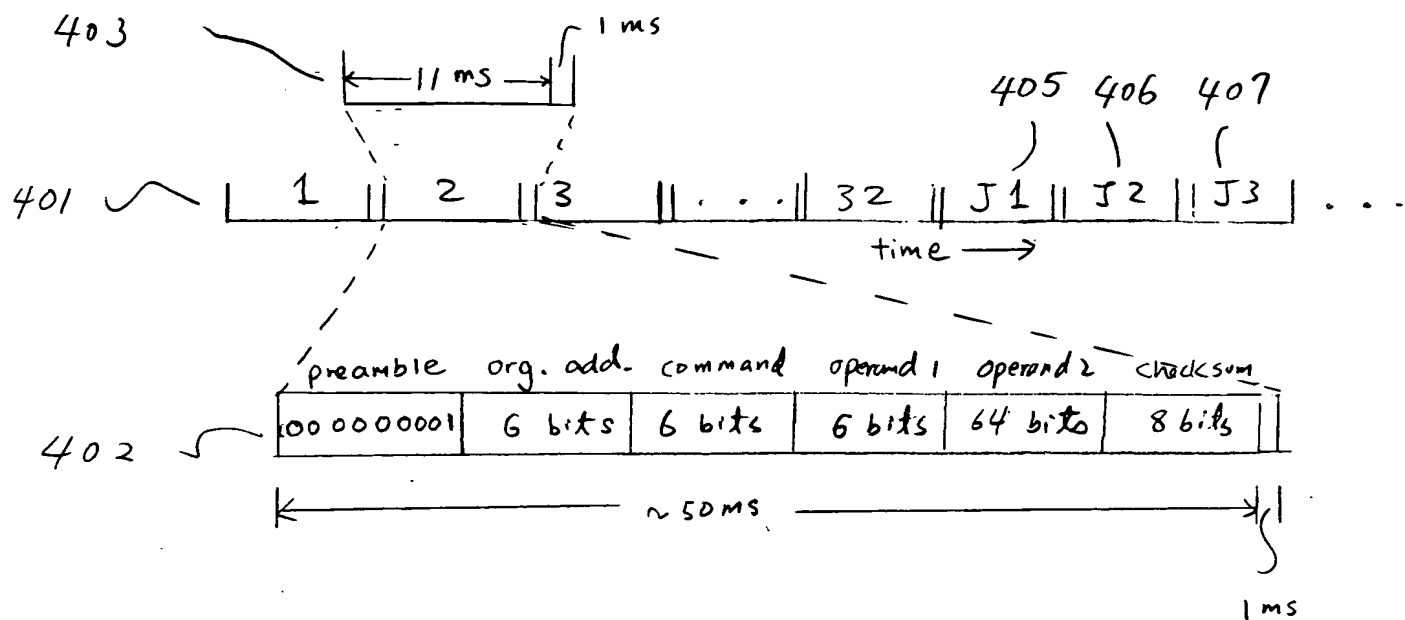 403
1 ms
11 ms
405 406 407
401
1 2 3 . . . 32 J1 J2 J3 . . .
time
preamble org. add. command operand 1 operand 2 checksum
402
000000001 6 bits 6 bits 6 bits 64 bits 8 bits
~50ms
1 ms